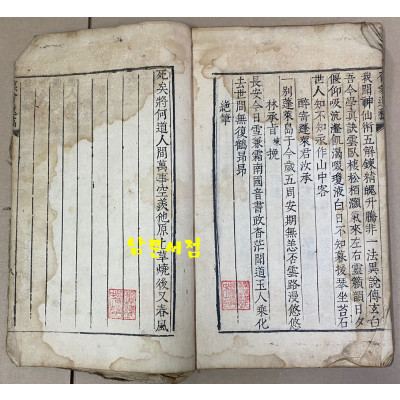 我聞神仙術五解鍊精魄升騰非一法異說傳玄白
吾今學眞訣雲臥棲松栢灝氣來左右靈籟韻日夕
俛仰吸沆瀣飢渴啜瓊液白日不知暮後琴坐苔石
世人知不知永作山中客
醉裔蓬萊君汝承
一別蓬萊島于今歲五周安期無恙否雲路漫悠悠
林承旨 挽
長安今日雪兼霜南國音書政杳茫聞道玉人乘化
去世間無復鶴昂昂
絶筆
死矣將何道人間萬事空羨他原上草燒後又春風
남문서점